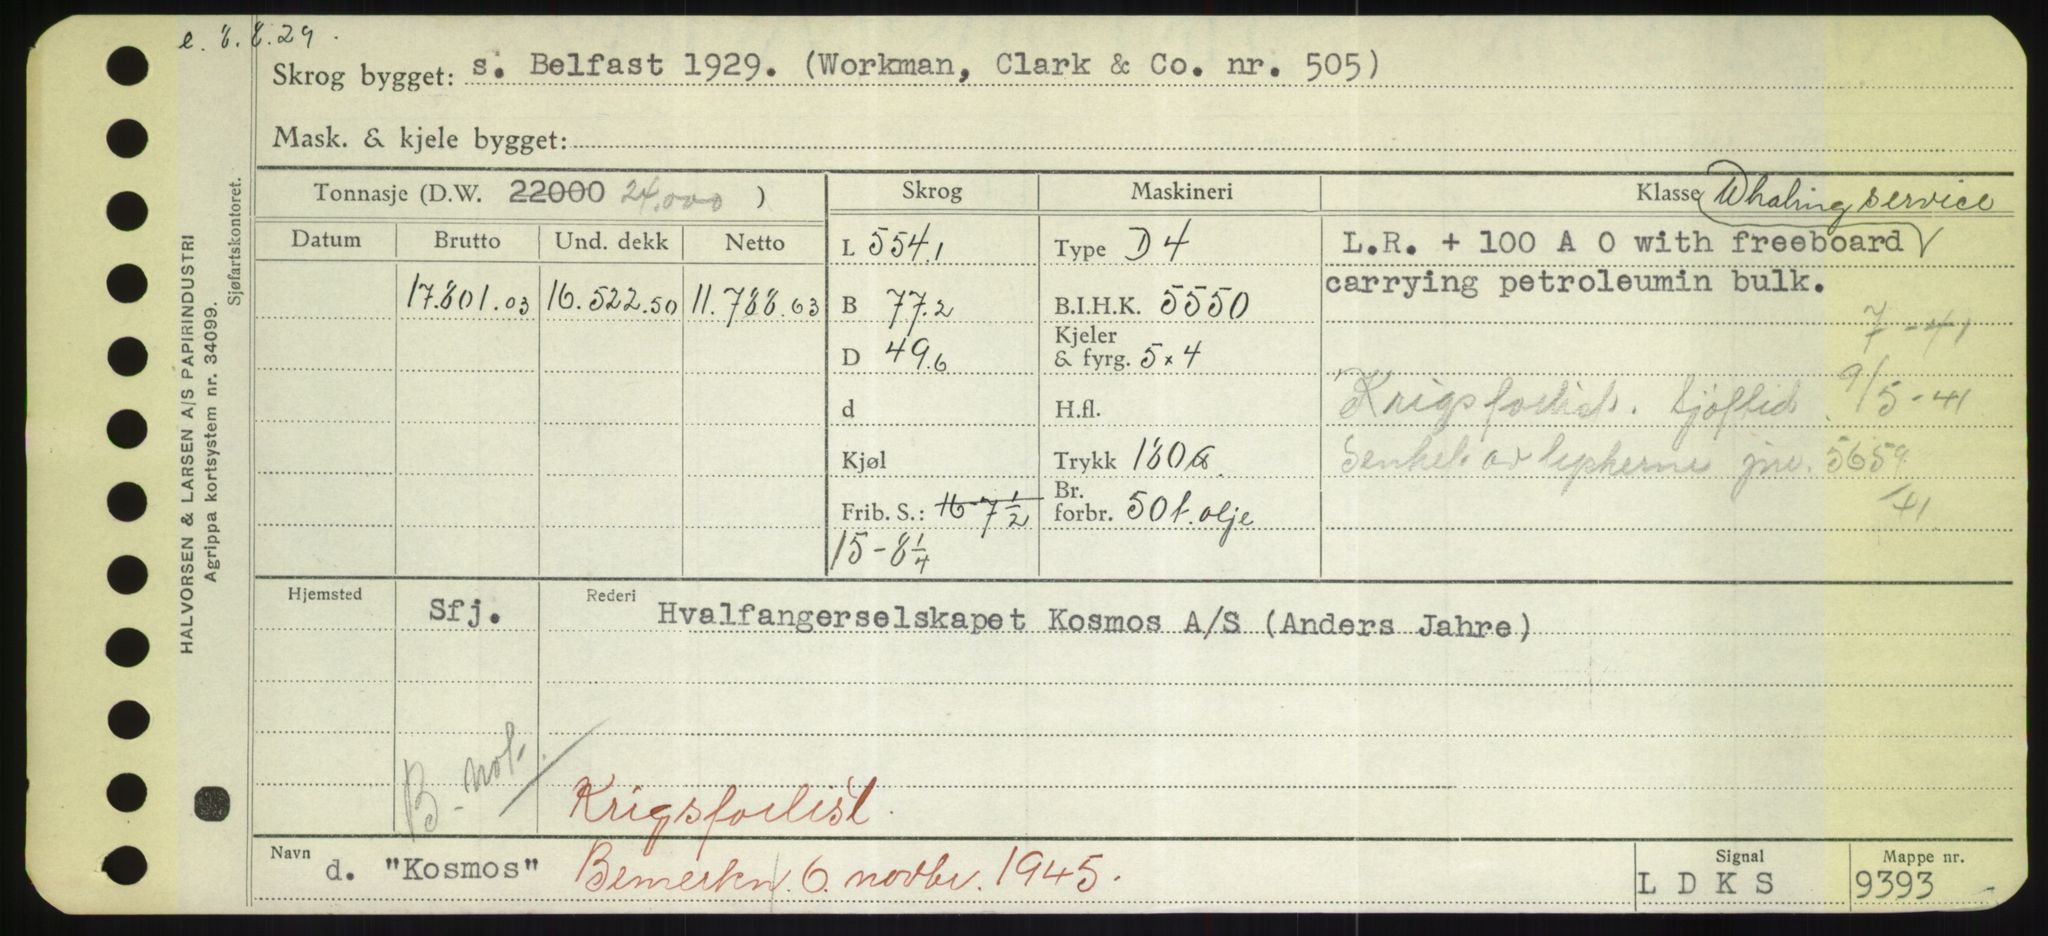 e. 8.8.29.
Skrog bygget: s. Belfast 1929. (Workman, Clark & Co. nr. 505)
Mask. & kjele bygget:
HALVORSEN & LARSEN A/S PAPIRINDUSTRI
Agrippa kortsystem nr. 34099.
Sjøfartskontoret.
Tonnasje (D.W. 22000 24.000 )
Datum Brutto Und. dekk Netto
17.801.03 16.522.50 11.788.63
Skrog
L 554.1
B 77.2
D 49.6
d
Kjøl
Frib. S.: 16-7 1/2
15-8 1/4
Maskineri
Type D 4
B.I.H.K. 5550
Kjeler
& fyrg. 5x4
H.fl.
Trykk 180
Br.
forbr. 50 t. olje
Klasse Whaling service
L.R. + 100 A 0 with freeboard
carrying petroleumin bulk.
7 - 41
Krigsforlist. Sjøftid. 9/5-41
Senket av jnr. 5659
/41
Hjemsted Sfj.
Rederi Hvalfangerselskapet Kosmos A/S (Anders Jahre)
B-not.
Krigsforlist.
Navn d. "Kosmos" Bemerkn. 6. novbr. 1945.
Signal
L D K S
Mappe nr.
9393